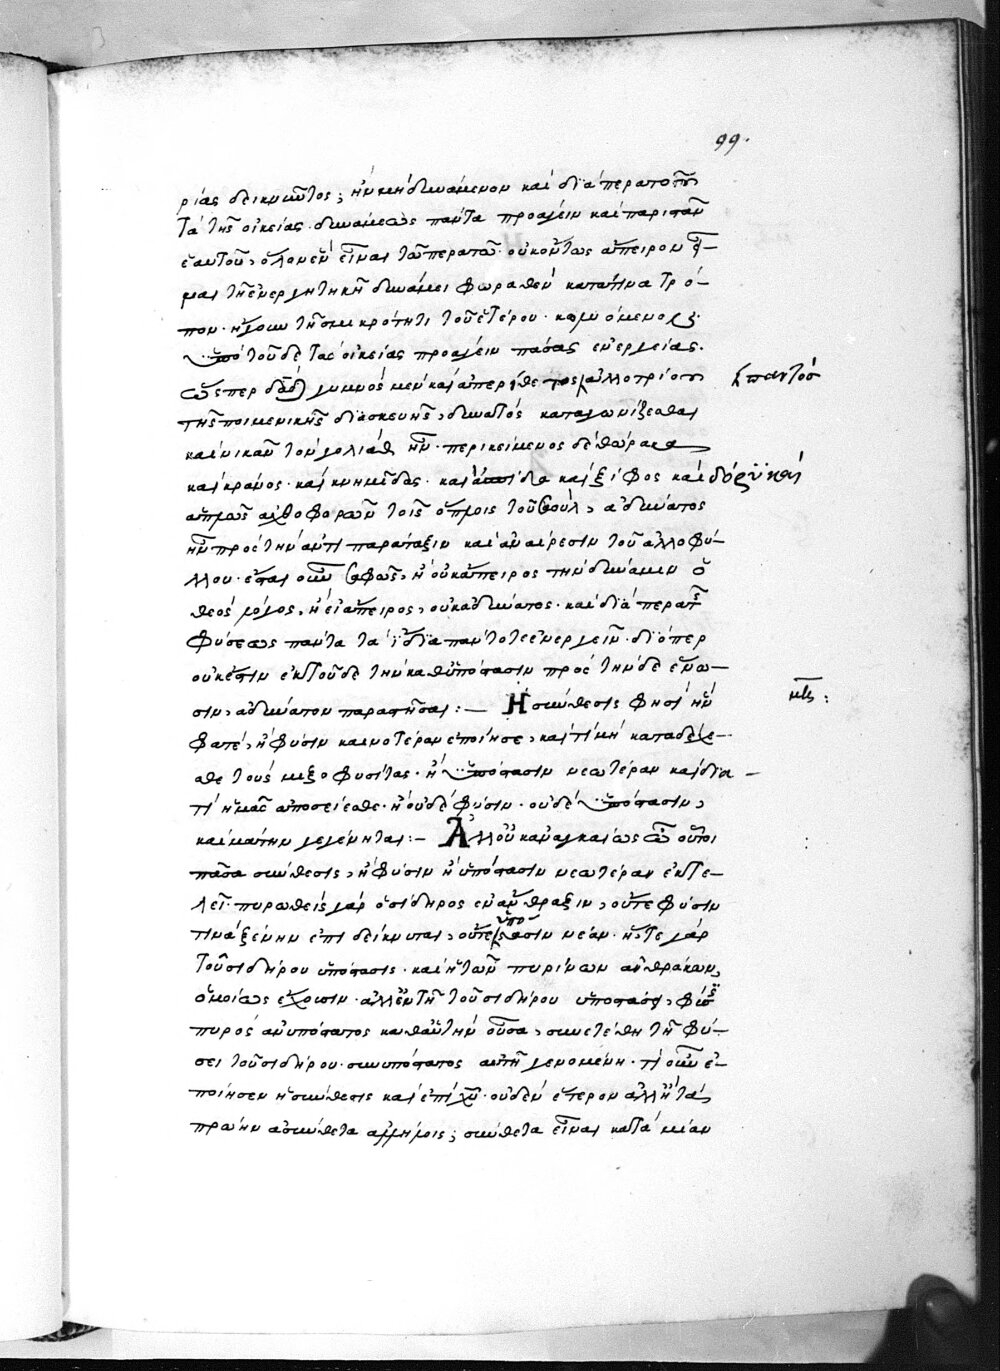 99.
ρίας δεικνῦντος; ἢ μὴ δυνάμενον καὶ διὰ πέρατος
τὰ τῆς οἰκείας δυνάμεως πάντα προάγειν καὶ παριστᾶν
ἑαυτοῦ, ὅλον ἓν εἶναι τῶν περατῶν· οὐκ ὄντως ἄπειρον
μαι τῇ ἐνεργητικῇ δυνάμει φωραθὲν κατά τινα τρό-
πον· ἤγουν τῇ σμικρότητι τοῦ ἑτέρου· κωλυόμενος
ὑπὸ τοῦδε τὰς οἰκείας προάγειν πάσας ἐνεργείας.
ὥσπερ δᾱδ γυμνὸς μὲν καὶ ἀλλοτρίας παντὸς
τῆς ποιμενικῆς διασκευῆς, δυνατὸς καταγωνίζεσθαι
καὶ νικᾶν τὸν γολιὰθ ἦν· περικείμενος δὲ θώρακα
καὶ κράνος· καὶ κνημῖδας· καὶ ἀσπίδα καὶ ξίφος καὶ δόρυ καὶ
ἁπλῶς ἀχθοφορῶν τοῖς ὅπλοις τοῦ σαούλ, ἀδύνατος
ἦν πρὸς τὴν ἀντιπαράταξιν καὶ ἀναίρεσιν τοῦ ἀλλοφύ-
λου· ἔσται οὖν σαφῶς, ἢ οὐκ ἄπειρος τὴν δύναμιν ὁ
θεὸς λόγος, ἢ εἰ ἄπειρος, οὐκ ἀδύνατος· καὶ διὰ περατῆς
φύσεως πάντα τὰ ἴδια πάντοτε ἐνεργεῖν· διόπερ
οὐκ ἔστιν ἐκ τοῦδε τὴν καθ' ὑπόστασιν πρὸς τήνδε ἕνω-
σιν, ἀδύνατον παραστῆσαι:— Ἡ σύνθεσις φησὶ ἣν
φατέ, ἢ φύσιν καινοτέραν ἐποίησε, καὶ τί μὴ καταδέχε-
σθε τοὺς μιξοφυσίτας· ἢ ὑπόστασιν νεωτέραν καὶ δια-
τί ἡμᾶς ἀποσείεσθε· ἢ οὐδὲ φύσιν· οὐδὲ ὑπόστασιν,
καὶ μάτην γεγένηται:— Ἀλλ' οὐκ ἀναγκαίως ὦ οὗτοι
πᾶσα σύνθεσις, ἢ φύσιν ἢ ὑπόστασιν νεωτέραν ἐκτε-
λεῖ· πυρωθεὶς γὰρ ὁ σίδηρος ἐν ἄνθραξιν, οὔτε φύσιν
τινὰ ξένην ἐπιδείκνυται, οὔτε ὑπόστασιν νέαν· ἥ τε γὰρ
τοῦ σιδήρου ὑπόστασις· καὶ ἡ τῶν πυρίνων ἀνθράκων,
ὁμοίως ἔχουσιν· ἀλλ' ἐν τῇ τοῦ σιδήρου ὑποστάσει, φύσις
πυρὸς ἀνυπόστατος καθ' αὑτὴν οὖσα, συνετέθη τῇ φύ-
σει τοῦ σιδήρου· συνυπόστατος αὐτῇ γενομένη· τί οὖν ἐ-
ποίησεν ἡ σύνθεσις καὶ ἐπὶ χ̅υ̅· οὐδὲν ἕτερον ἀλλ' ἢ τὰς
πρώην ἀσύνθετα ἀλλήλοις; σύνθετα εἶναι κατὰ μίαν